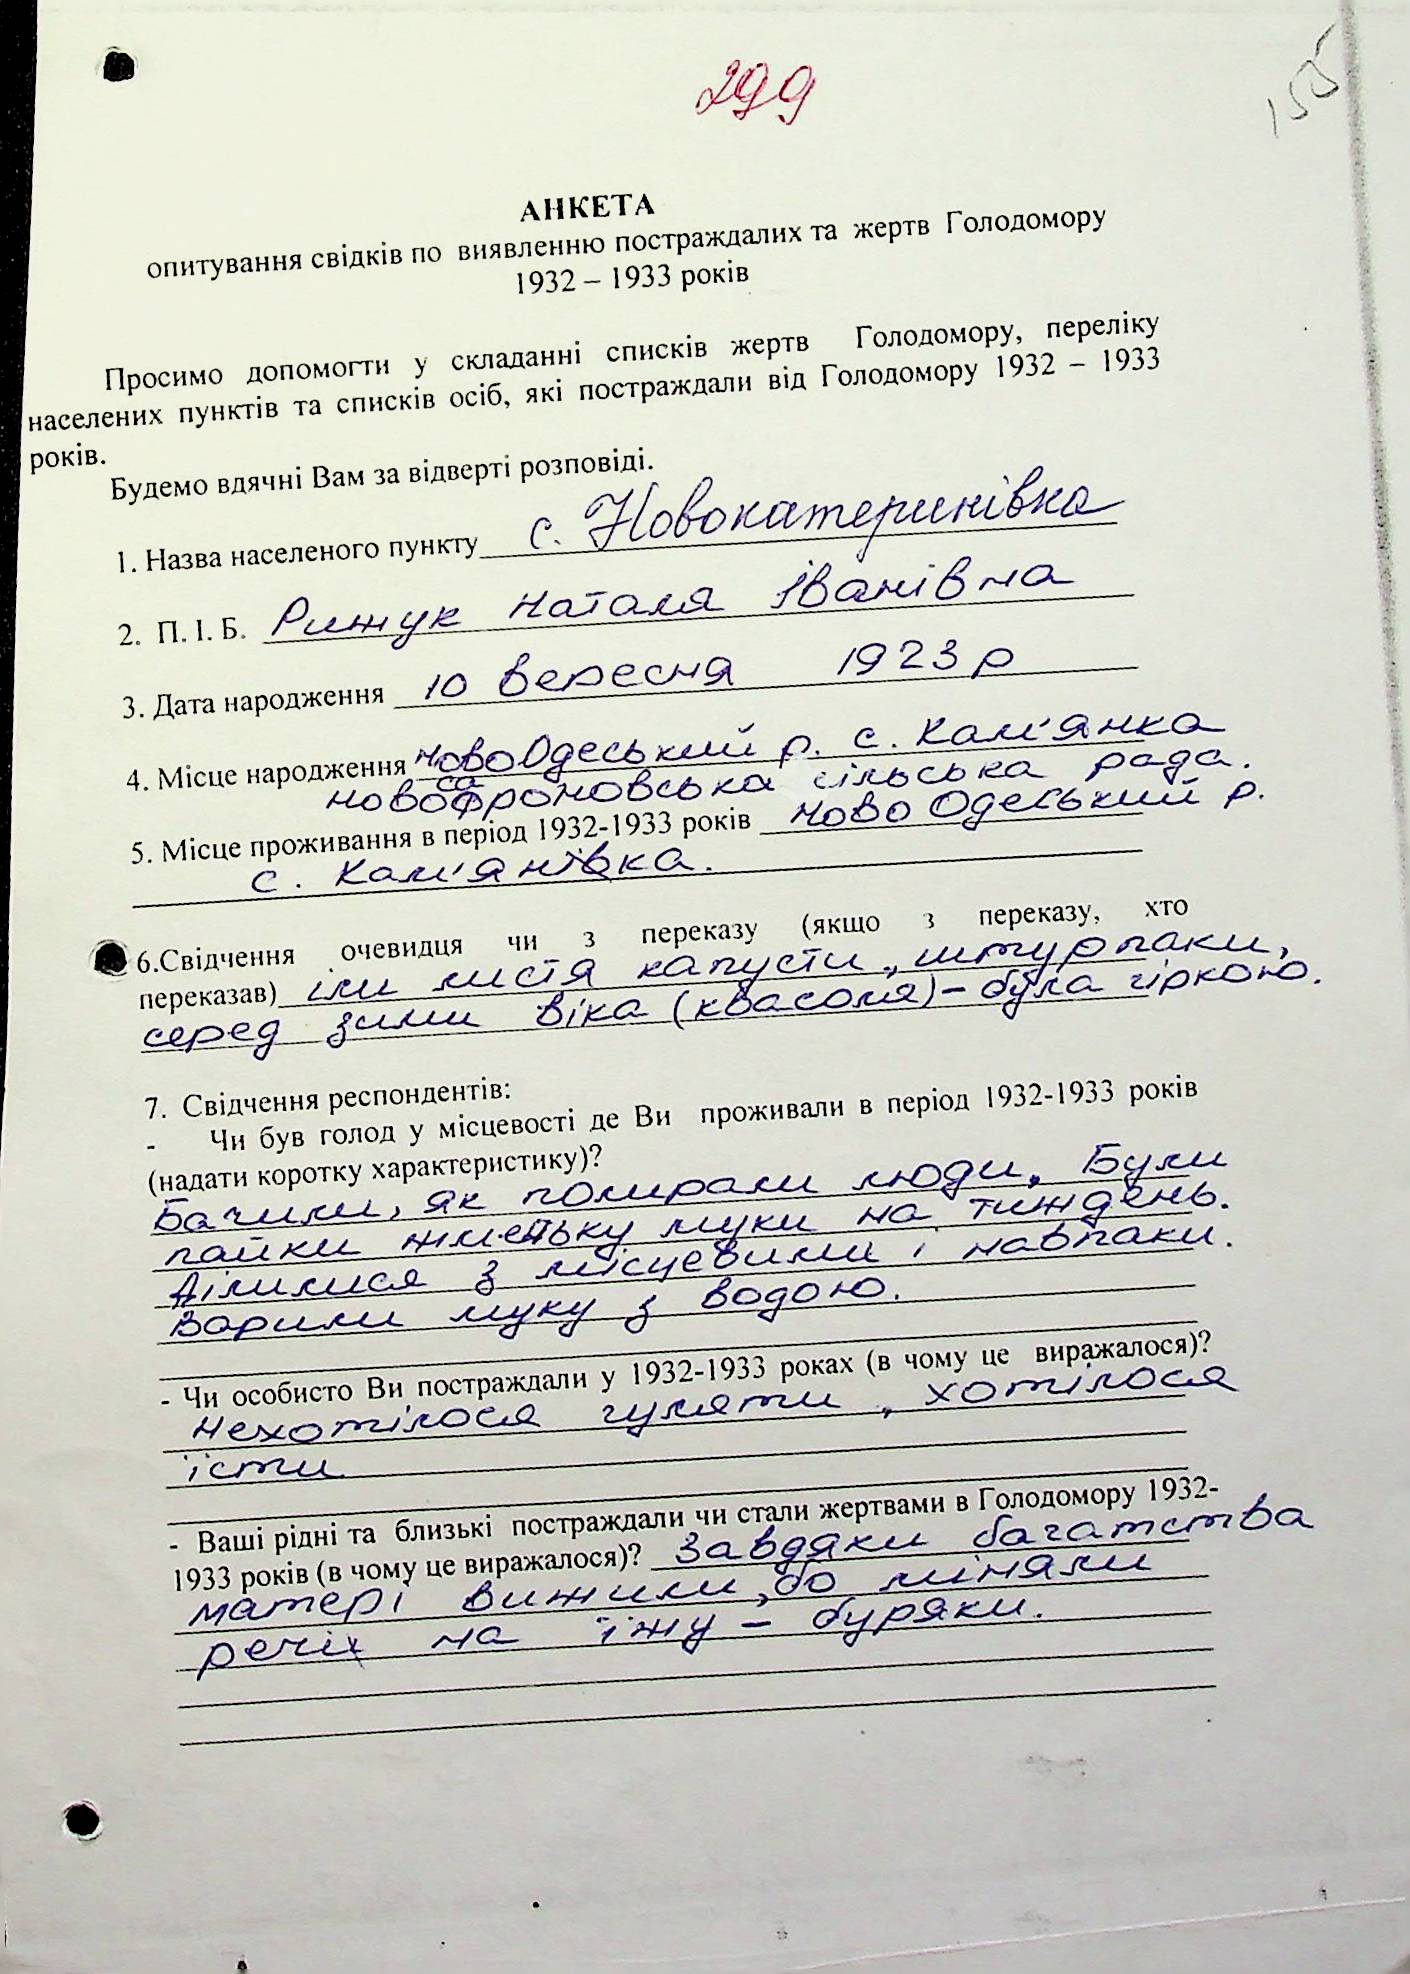 299
155
АНКЕТА
опитування свідків по виявленню постраждалих та жертв Голодомору
1932 – 1933 років
Просимо допомогти у складанні списків жертв Голодомору, переліку
населених пунктів та списків осіб, які постраждали від Голодомору 1932 – 1933
років.
Будемо вдячні Вам за відверті розповіді.
1. Назва населеного пункту с. Новокатеринівка
2. П. І. Б. Рижук Наталя Іванівна
3. Дата народження 10 вересня 1923 р
4. Місце народження НовоОдеський р. с. Кам'янка
сільська рада.
5. Місце проживання в період 1932-1933 років Ново Одеський р.
с. Кам'янівка.
6.Свідчення очевидця чи з переказу (якщо з переказу, хто
переказав) їли листя капусти, штурпаки,
серед зими віка (квасоля) – була гіркою.
7. Свідчення респондентів:
- Чи був голод у місцевості де Ви проживали в період 1932-1933 років
(надати коротку характеристику)?
Бачили, як помирали люди. Були
пайки жменьку муки на тиждень.
Ділилися з місцевими і навпаки.
Варили муку з водою.
- Чи особисто Ви постраждали у 1932-1933 роках (в чому це виражалося)?
Нехотілося гуляти, хотілося
їсти
- Ваші рідні та близькі постраждали чи стали жертвами в Голодомору 1932-
1933 років (в чому це виражалося)? Завдяки багатства
матері вижили, бо міняли
речі на їжу – буряки.